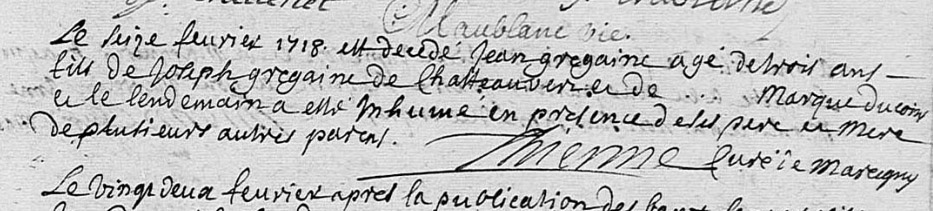 Maublanc vic.
Le seize fevrier 1718. est decedé Jean gregaine agé de trois ans
fils de Joseph gregaine de Chasteauvert et de Marque ducoin
et le lendemain a esté Inhumé en presence de ses pere et mere
de plusieurs autres parens.
curé de Marcigny
Le vingt deux fevrier apres la publication des bans